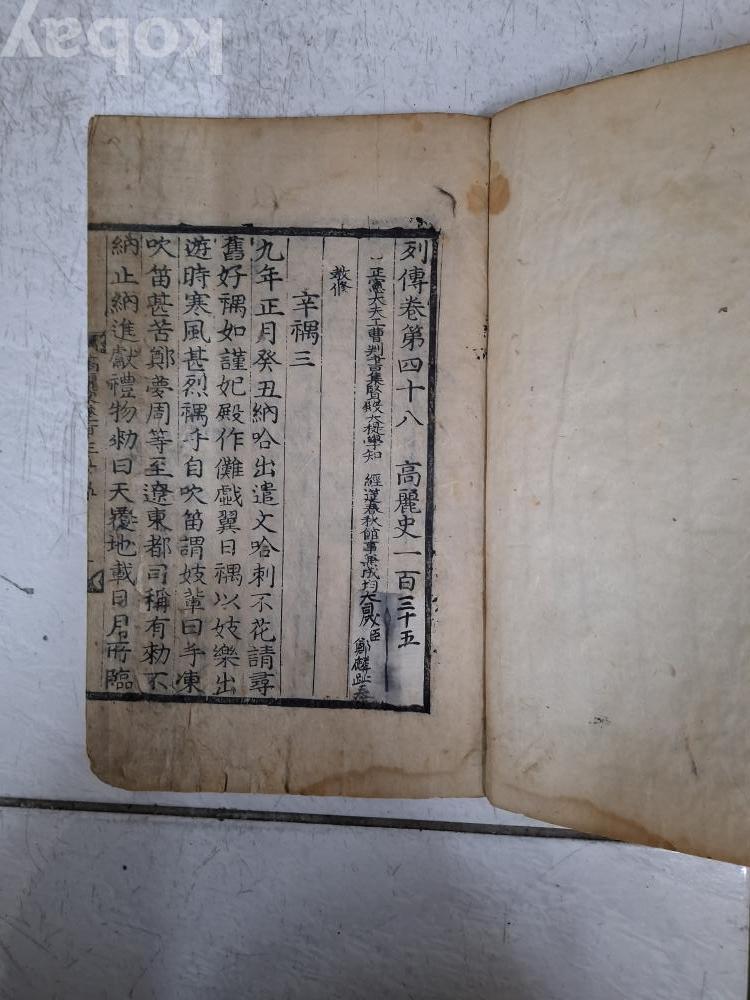 列傳卷第四十八 高麗史一百三十五
正憲大夫工曹判書集賢殿大提學知 經筵春秋館事兼成均大司成臣 鄭麟趾奉
敎修
辛禑三
九年正月癸丑納哈出遣文哈剌不花請尋
舊好禑如謹妃殿作儺戱翼日禑以妓樂出
遊時寒風甚烈禑手自吹笛謂妓輩曰手凍
吹笛甚苦鄭夢周等至遼東都司稱有勑不
納止納進獻禮物勑曰天覆地載日月所臨
kobay